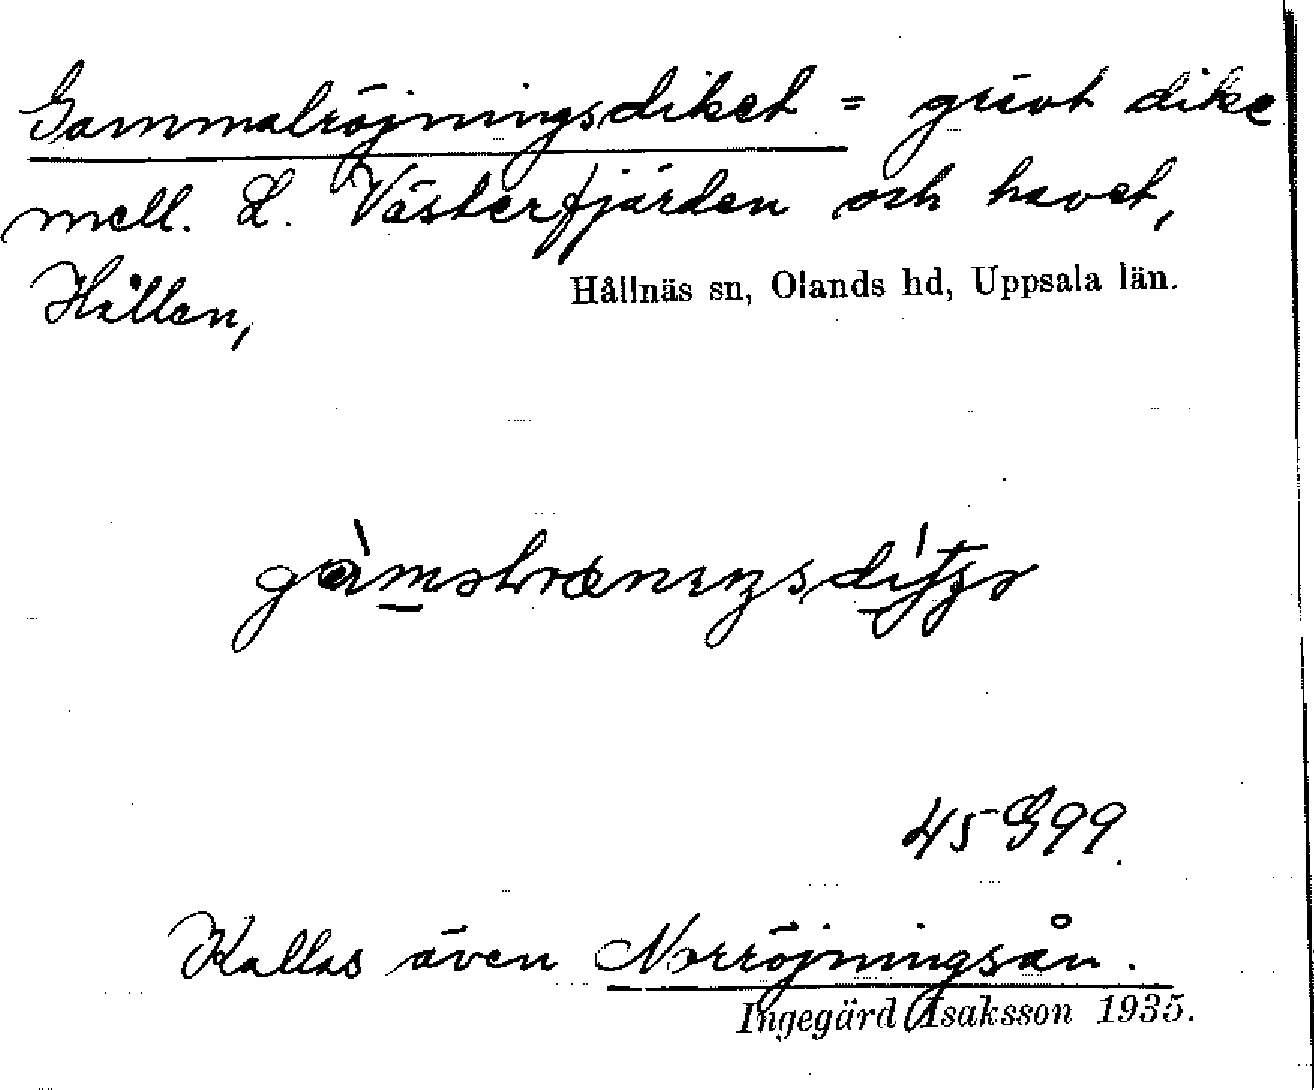 Gammalröjningsdiket = grävt dike
mell. L. Västerfjärden och havet,
Hållen,
Hållnäs sn, Olands hd, Uppsala län.
45 G 99.
Kallas även Norröjningsån.
Ingegärd Isaksson 1935.